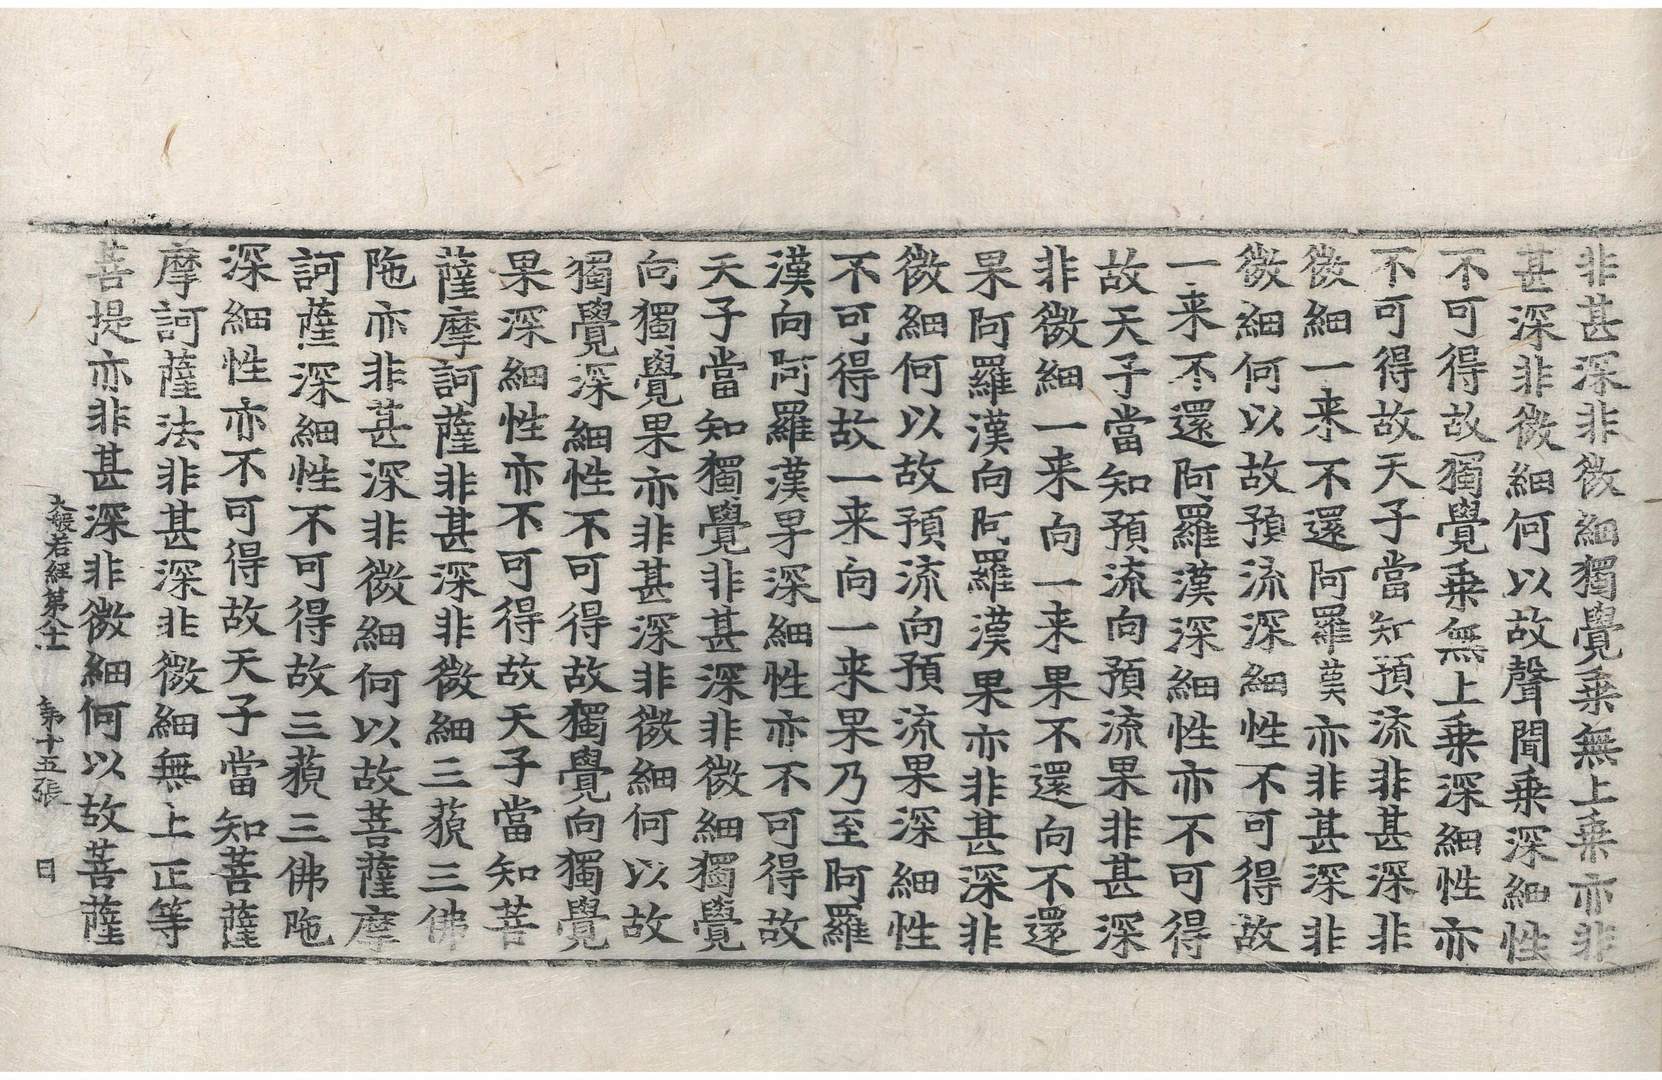 非甚深非微細獨覺乗無上乗亦非
甚深非微細何以故聲聞乗深細性
不可得故獨覺乗無上乗深細性亦
不可得故天子當知預流非甚深非
微細一来不還阿羅漢亦非甚深非
微細何以故預流深細性不可得故
一来不還阿羅漢深細性亦不可得
故天子當知預流向預流果非甚深
非微細一来向一来果不還向不還
果阿羅漢向阿羅漢果亦非甚深非
微細何以故預流向預流果深細性
不可得故一来向一来果乃至阿羅
漢向阿羅漢果深細性亦不可得故
天子當知獨覺非甚深非微細獨覺
向獨覺果亦非甚深非微細何以故
獨覺深細性不可得故獨覺向獨覺
果深細性亦不可得故天子當知菩
薩摩訶薩非甚深非微細三藐三佛
陁亦非甚深非微細何以故菩薩摩
訶薩深細性不可得故三藐三佛陁
深細性亦不可得故天子當知菩薩
摩訶薩法非甚深非微細無上正等
菩提亦非甚深非微細何以故菩薩
大般若經第八十二 第十五張 日